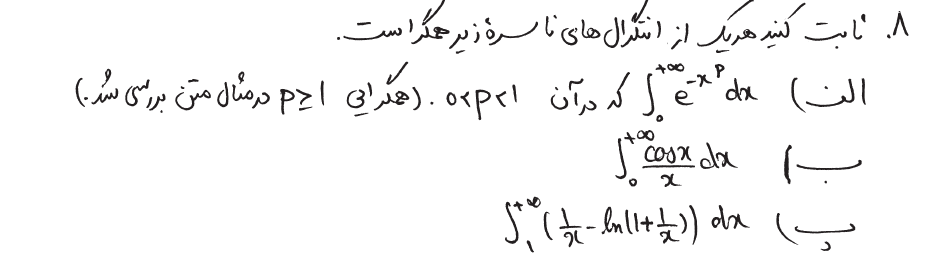 ۸. ثابت کنید هریک از انتگرال های ناسرهٔ زیر همگراست.
الف) ∫₀^{+∞} e^{-x^p} dx که در آن 0<p<1. (همگرایی p≥1 در مثال متن بررسی شد.)
ب) ∫₀^{+∞} cosx/x dx
پ) ∫₁^{+∞} (1/x - ln(1+1/x)) dx